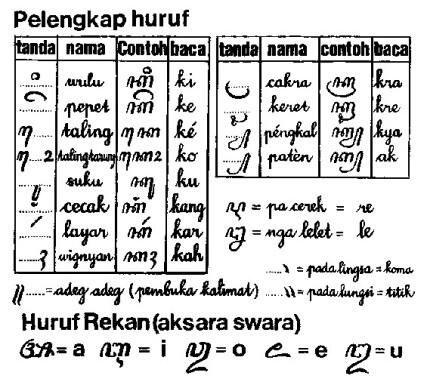 Pelengkap huruf
tanda nama Contoh baca
ꦶ wulu ꦏꦶ ki
ꦼ pepet ꦏꦼ ke
ꦺ.... taling ꦏꦺ ké
ꦺ....ꦴ talingtarung ꦏꦺꦴ ko
ꦸ suku ꦏꦸ ku
ꦁ cecak ꦏꦁ kang
ꦂ layar ꦏꦂ kar
....ꦃ wignyan ꦏꦃ kah
tanda nama contoh baca
ꦿ cakra ꦏꦿ kra
ꦽ keret ꦏꦽ kre
ꦾ péngkal ꦏꦾ kya
꧀ patèn ꦏ꧀ ak
ꦉ = pa cerek = re
ꦊ = nga lelet = le
.....꧈ = pada lingsa = koma
꧋.....= adeg adeg (pembuka kalimat) .....꧉ = pada lungsi = titik
Huruf Rekan (aksara swara)
ꦄ = a ꦆ = i ꦎ = o ꦌ = e ꦈ = u